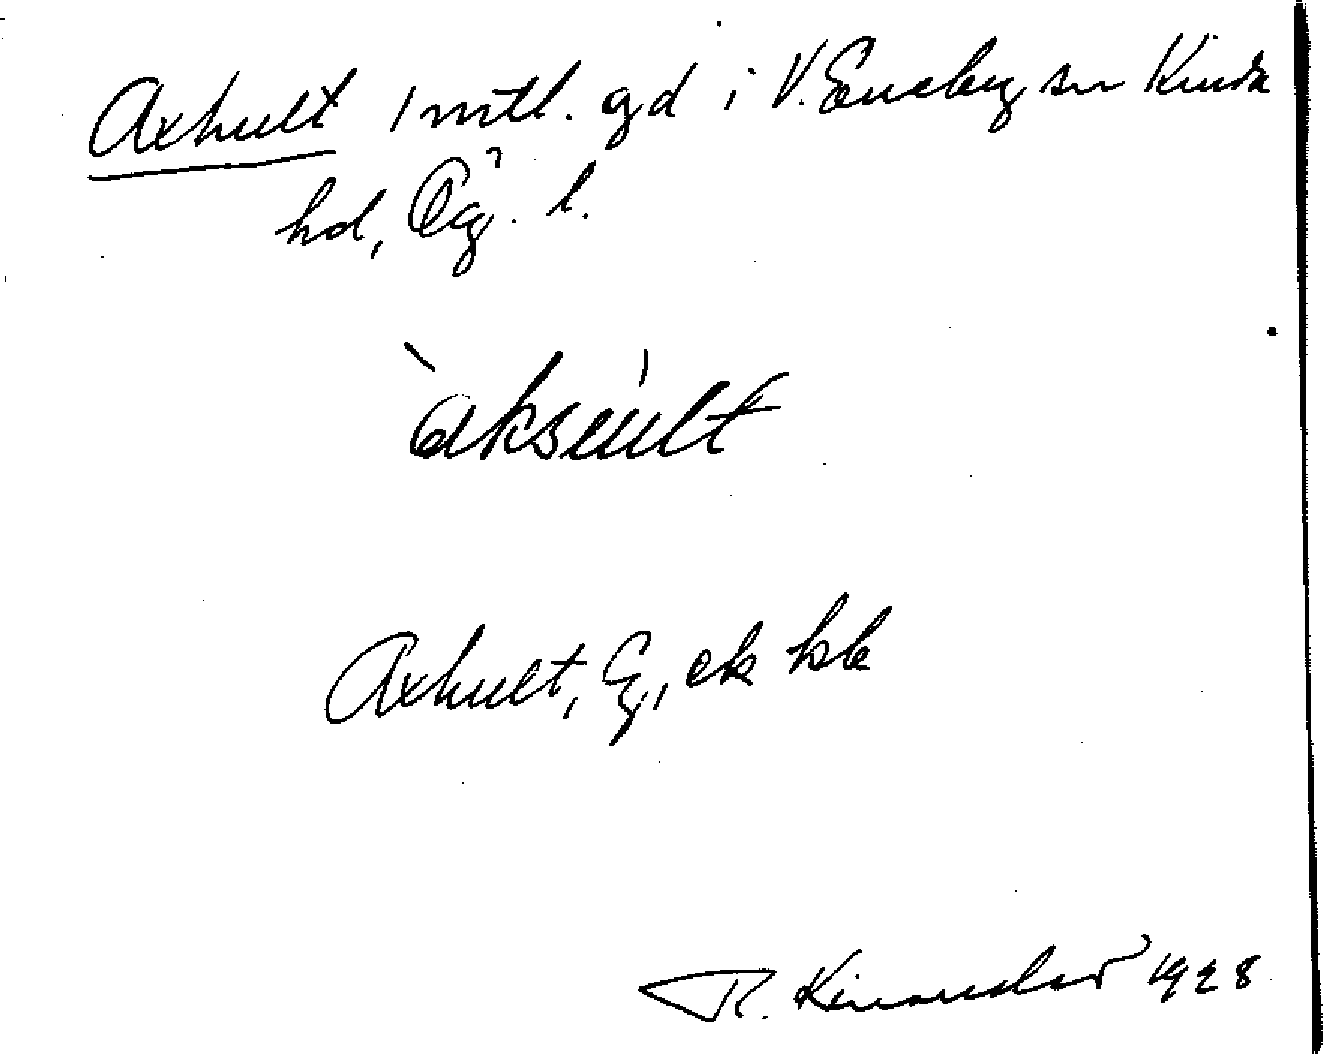 Axhult 1 mtl. gd i V. Eneby sn Kinda
hd, Ög. l.
àksúlt
Axhult, E, ek kbl
R. Kinander 1928